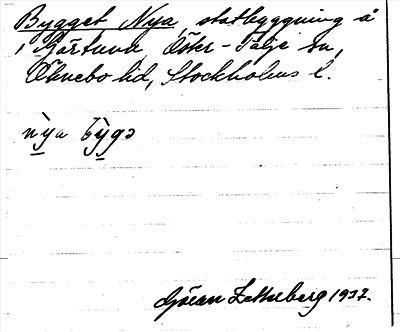 Bygget Nya, statbyggning å
i Gärtuna, Öster-Tälje sn,
Öknebo hd, Stockholms l.
nya bygə
Göran Zetterberg 1937.